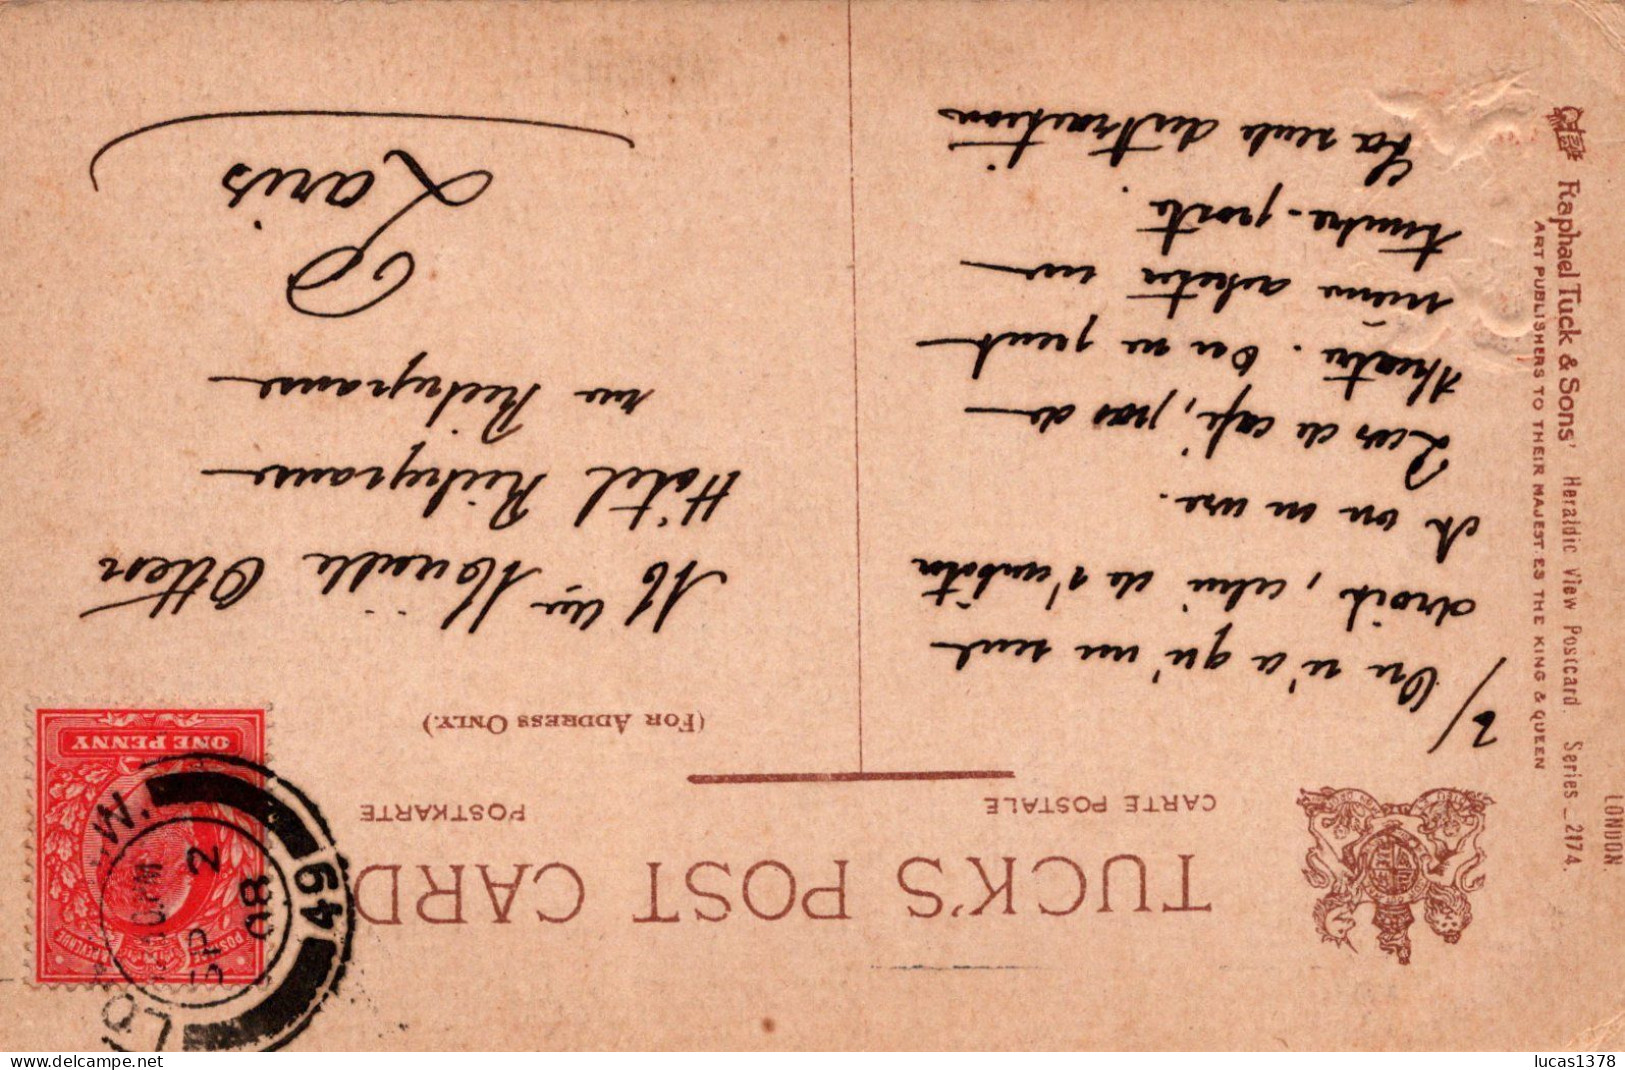 TUCK'S POST CARD
CARTE POSTALE
POSTKARTE
(FOR ADDRESS ONLY.)
2/
On n'a qu'un seul
droit, celui de s'embêter
et on en use.
Pas de café, pas de
théâtre. On ne peut
même acheter un
timbre-poste.
La seule distraction
Otten
Hôtel Richepanse
rue Richepanse
Paris
Raphael Tuck & Sons' Heraldic View Postcard. Series 2174.
ART PUBLISHERS TO THEIR MAJESTIES THE KING & QUEEN
LONDON.
POSTAGE REVENUE
ONE PENNY
W.
SP 2
08
49
lucas1378